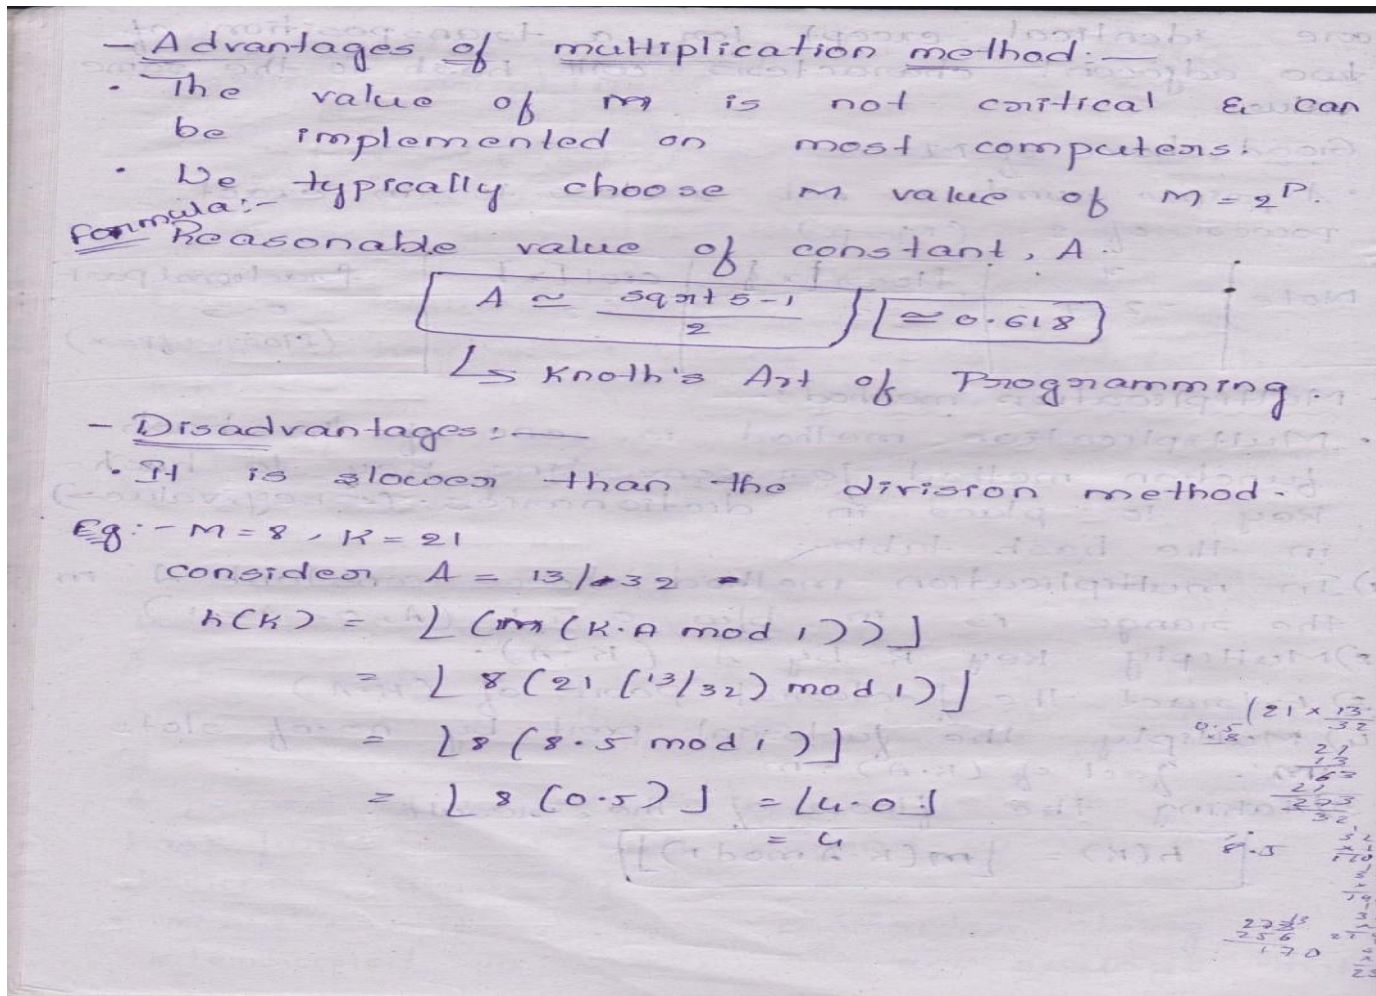 - Advantages of multiplication method:-
· The value of m is not critical & can
be implemented on most computers.
· We typically choose m value of M = 2^P.
Formula:-
Reasonable value of constant, A.
A ≃ sqrt 5 - 1 / 2 ≃ 0.618
↳ Knoth's Art of Programming.
- Disadvantages:-
· It is slower than the division method.
Eg:- M = 8, K = 21
consider A = 13/32
h(K) = ⌊(m (K.A mod 1))⌋
= ⌊ 8 (21 (13/32) mod 1)⌋
= ⌊8 (8.5 mod 1)⌋
= ⌊ 8 (0.5)⌋ = ⌊4.0⌋
= 4
(21 × 13
32
21
13
63
21
273
32
8.5
273
256
170